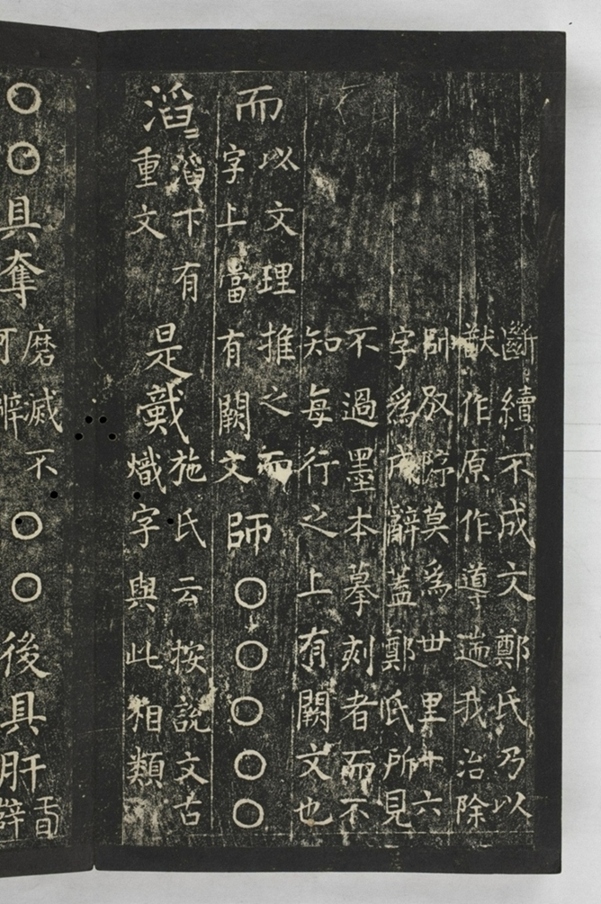 斷續不成文鄭氏乃以
猷作原作導遄我治除
帥莫為卅里廿六
字為成辭蓋鄭氏所見
不過墨本摹刻者而不
知每行之上有闕文也
而
以文理推之而
字上當有闕文
師○○○○○
滔=
滔下有
重文
是
施氏云按說文古
熾字與此相類
○○具奪
磨滅不
可辨
○○後具肝